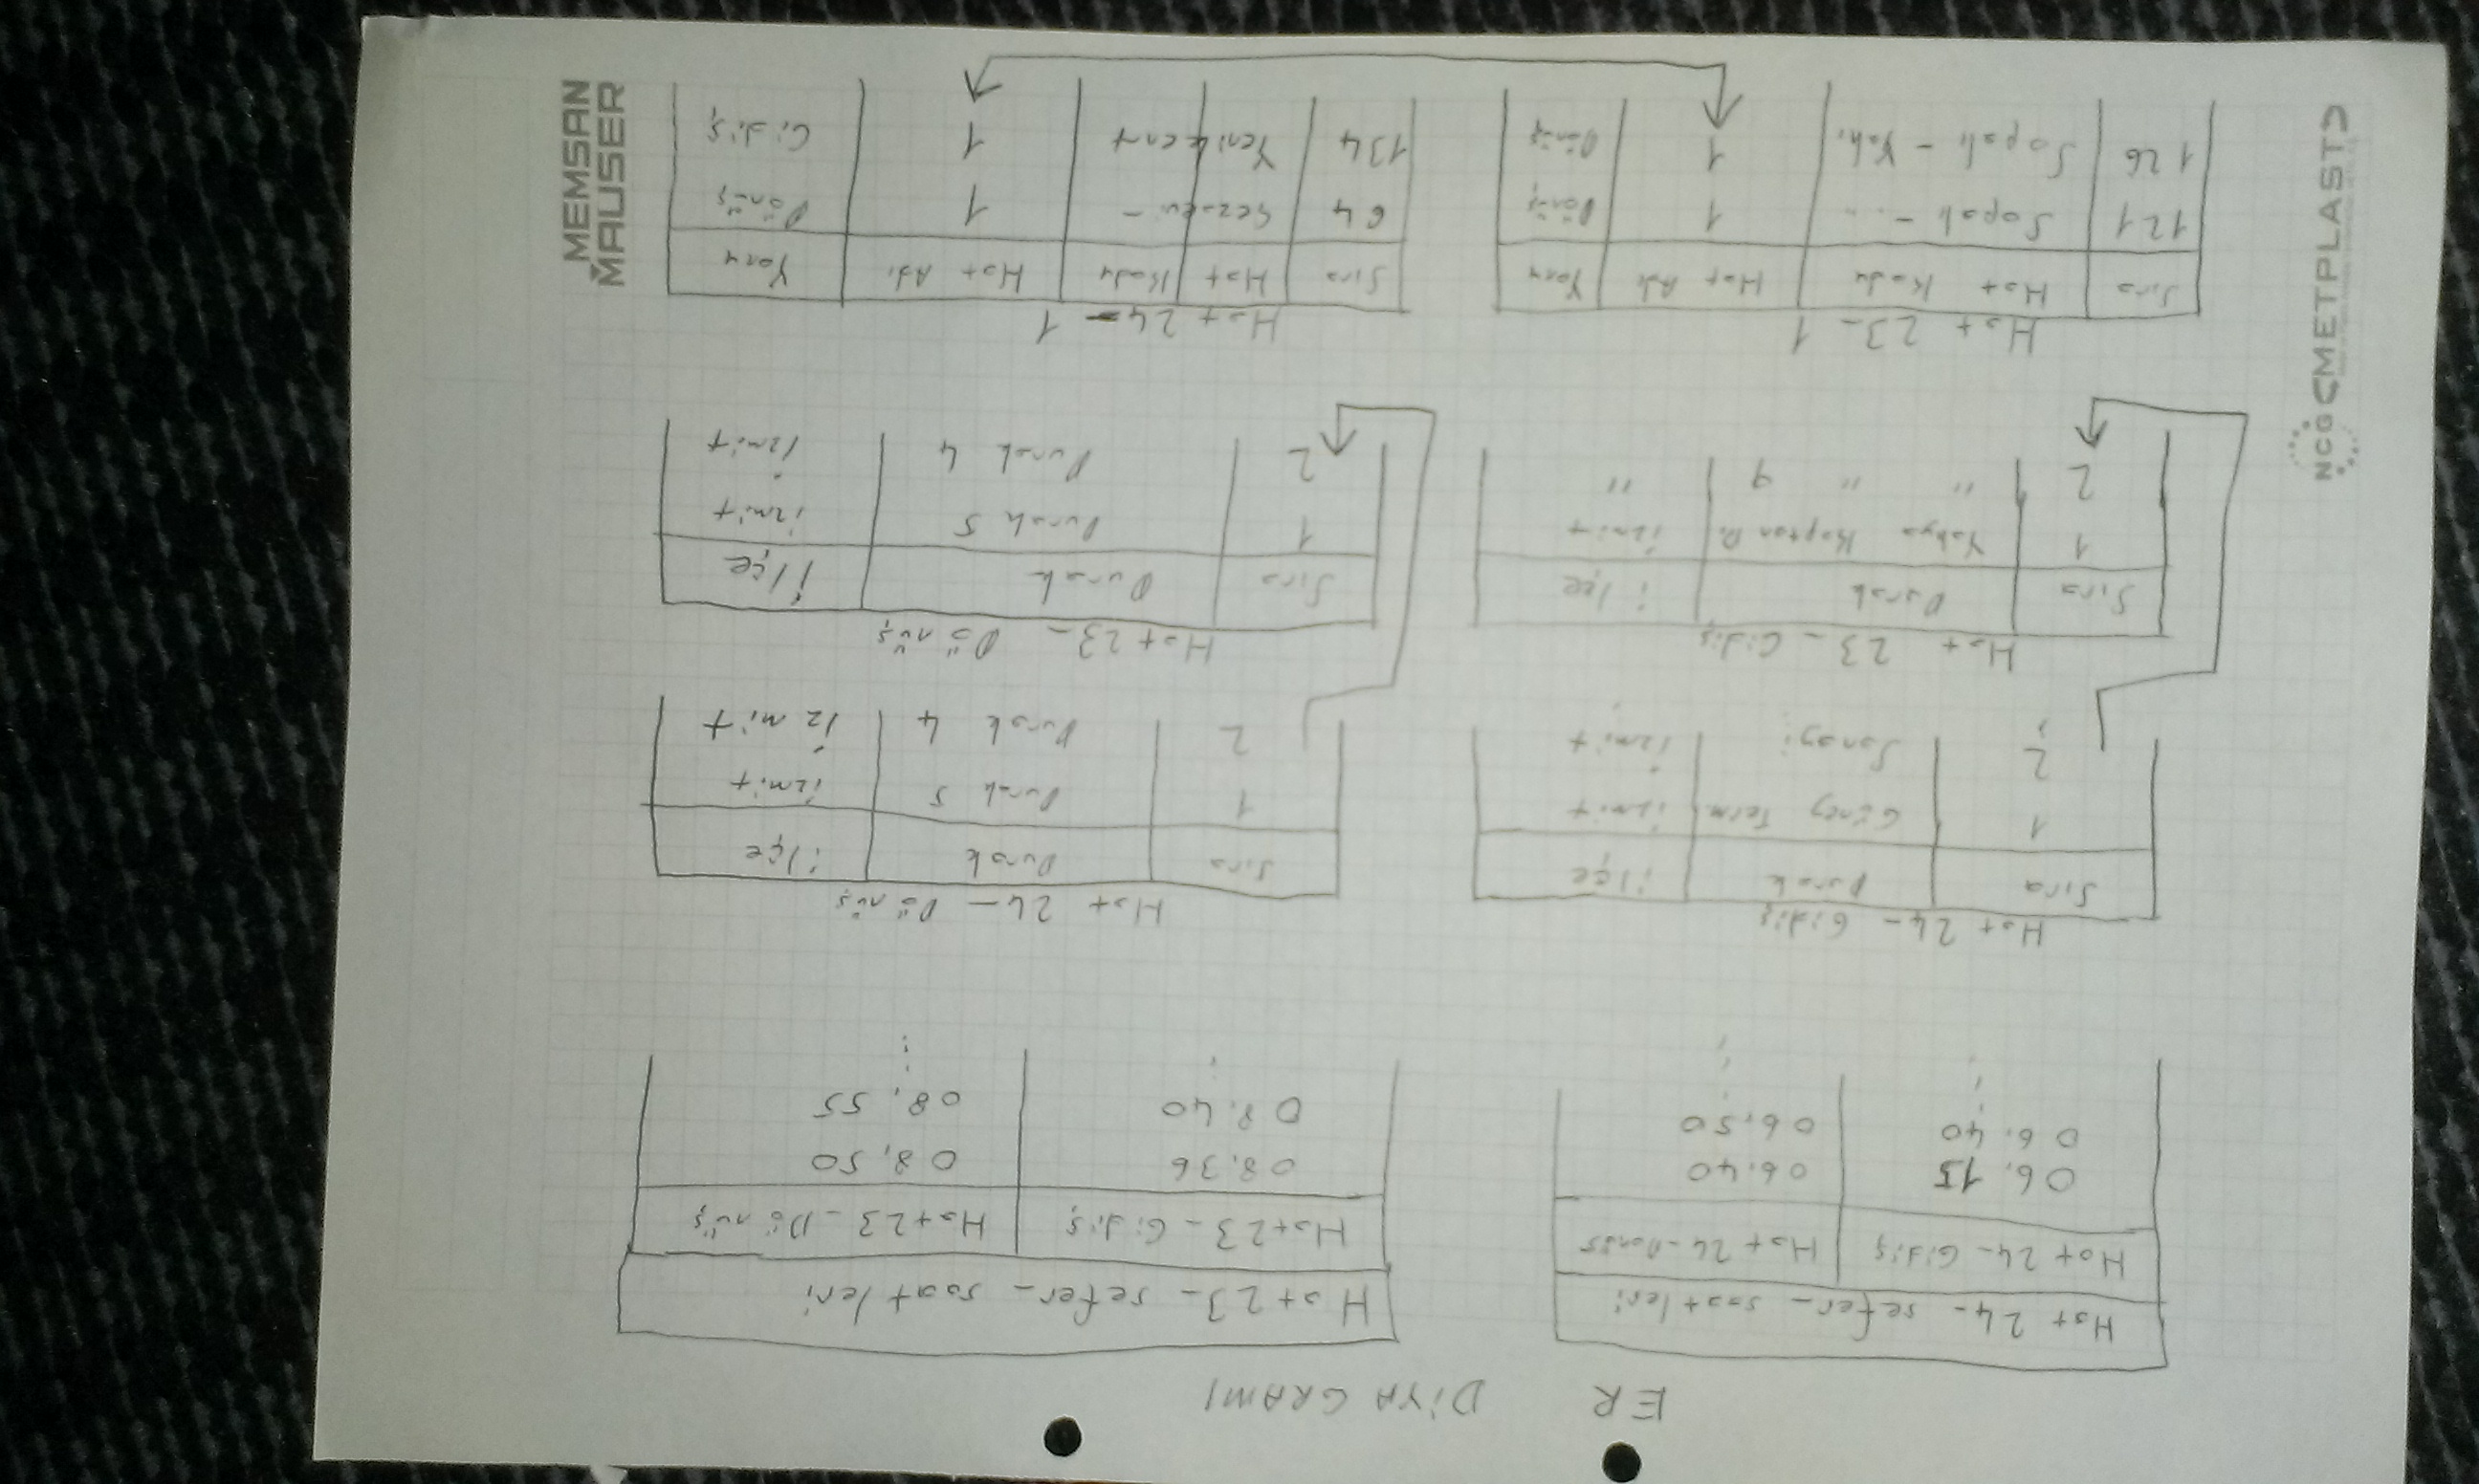 ER DİYAGRAMI
Hat 24 - sefer - saatleri
Hat 24 - Gidiş Hat 24 - Dönüş
06.15 06.40
06.40 06.50
Hat 23 - sefer - saatleri
Hat 23 - Gidiş Hat 23 - Dönüş
08.36 08.50
08.40 08.55
Hat 24 - Gidiş
Sıra Durak İlçe
1 Güney Term. İzmit
2 Sanayi İzmit
Hat 24 - Dönüş
Sıra Durak İlçe
1 Durak 5 İzmit
2 Durak 4 İzmit
Hat 23 - Gidiş
Sıra Durak İlçe
1 Yahya Kaptan D. İzmit
2 " " 9 "
Hat 23 - Dönüş
Sıra Durak İlçe
1 Durak 5 İzmit
2 Durak 4 İzmit
Hat 23 - 1
Sıra Hat Kodu Hat Adı Yönü
121 Sapak - ... 1 Dönüş
126 Sapak - 1 Dönüş
Hat 24 - 1
Sıra Hat Kodu Hat Adı Yönü
64 - 1 Dönüş
134 Yenikent 1 Gidiş
NCG METPLAST
MEMSAN
MAUSER